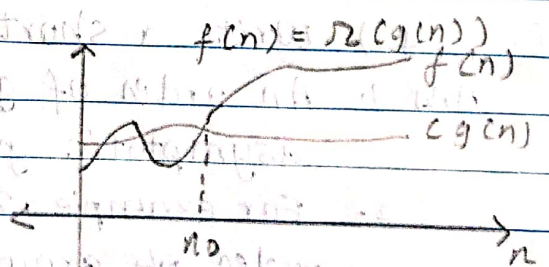 f(n) = Ω(g(n))
f(n)
cg(n)
n0
n